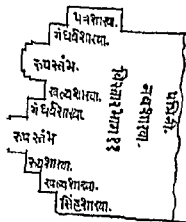 पत्रशाखा.
गंधर्वशाखा.
रुपस्तंभ.
खल्वशाखा.
गंधर्वशाखा.
रुपस्तंभ
रुपशाखा.
खल्वशाखा.
सिंहशाखा.
विस्तारभाग ११
नवशाखा.
पद्मिनी.